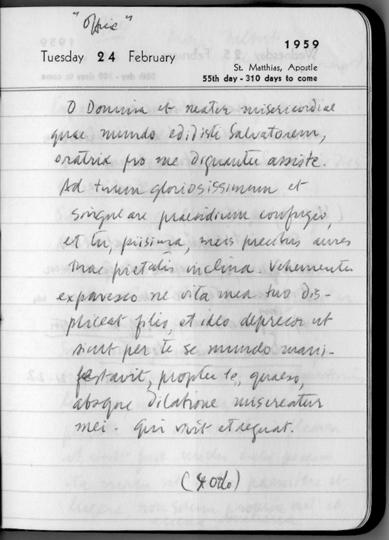 "Office"
1959
Tuesday 24 February
St. Matthias, Apostle
55th day - 310 days to come
O Domina et mater misericordiae
quae mundo edidisti Salvatorem,
oratrix pro me dignanter assiste.
Ad tuum gloriosissimum et
singulare praesidium confugio,
et tu, piissima, meis precibus aures
tuae pietatis inclina. Vehementer
expavesco ne vita mea tuo dis-
pliceat filio, et ideo deprecor ut
sicut per te se mundo mani-
festavit, propter te, quaeso,
absque dilatione misereatur
mei. Qui vivit et regnat.
(St Odo)